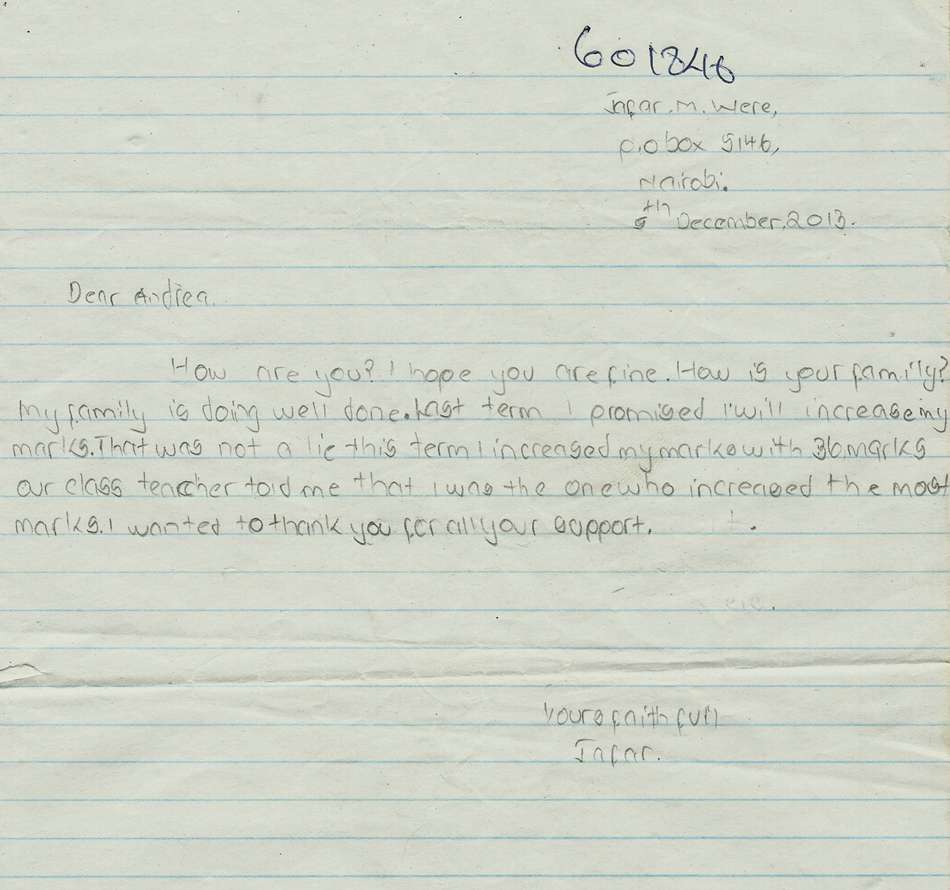 601846
Jafar. M. Were,
P.O box 5146,
Nairobi.
5th December, 2013.
Dear Andrea.
How are you? I hope you are fine. How is your family?
My family is doing well done. Last term I promised I will increase my
marks. That was not a lie this term I increased my marks with 36 marks
our class teacher told me that I was the one who increased the most
marks. I wanted to thank you for all your support.
Yours faithfull
Jafar.